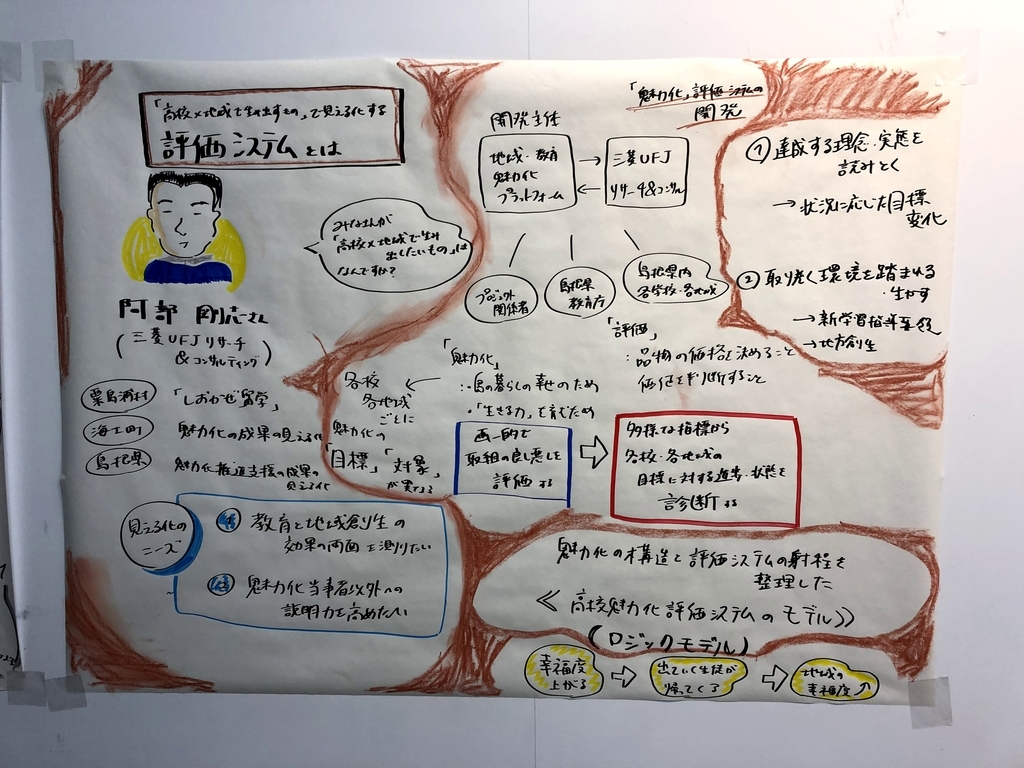 「高校×地域で生み出すもの」で見える化する
評価システムとは
みなさんが
「高校×地域で生み
出したいもの」は
なんですか?
阿部 剛志さん
(三菱UFJリサーチ
&コンサルティング)
粟島浦村
「しおかぜ留学」
海士町
魅力化の成果の見える化
島根県
魅力化推進支援の成果の
見える化
見える化の
ニーズ
教育と地域創生の
効果の両面を測りたい
魅力化当事者以外への
説明力を高めたい
「魅力化」評価システムの
開発
開発主任
地域・教育
魅力化
プラットフォーム
三菱UFJ
リサーチ&コンサル
プロジェクト
関係者
島根県
教育庁
島根県内
各学校・各地域
「魅力化」
:・島の暮らしの幸せのため
・「生きる力」を育むため
各校
各地域
ごとに
魅力化の
「目標」「対象」
が異なる
「評価」
:品物の価格を決めること
価値を判断すること
画一的で
取組の良し悪しを
評価する
多様な指標から
各校・各地域の
目標に対する進歩・状態を
診断する
① 達成する理念・実態を
読みとく
→状況に応じた目標
変化
② 取り巻く環境を踏まえる
・生かす
→新学習指導要領
→地方創生
魅力化の構造と評価システムの射程を
整理した
≪高校魅力化評価システムのモデル≫
(ロジックモデル)
幸福度
上がる
出ていく生徒が
帰ってくる
地域の
幸福度↑